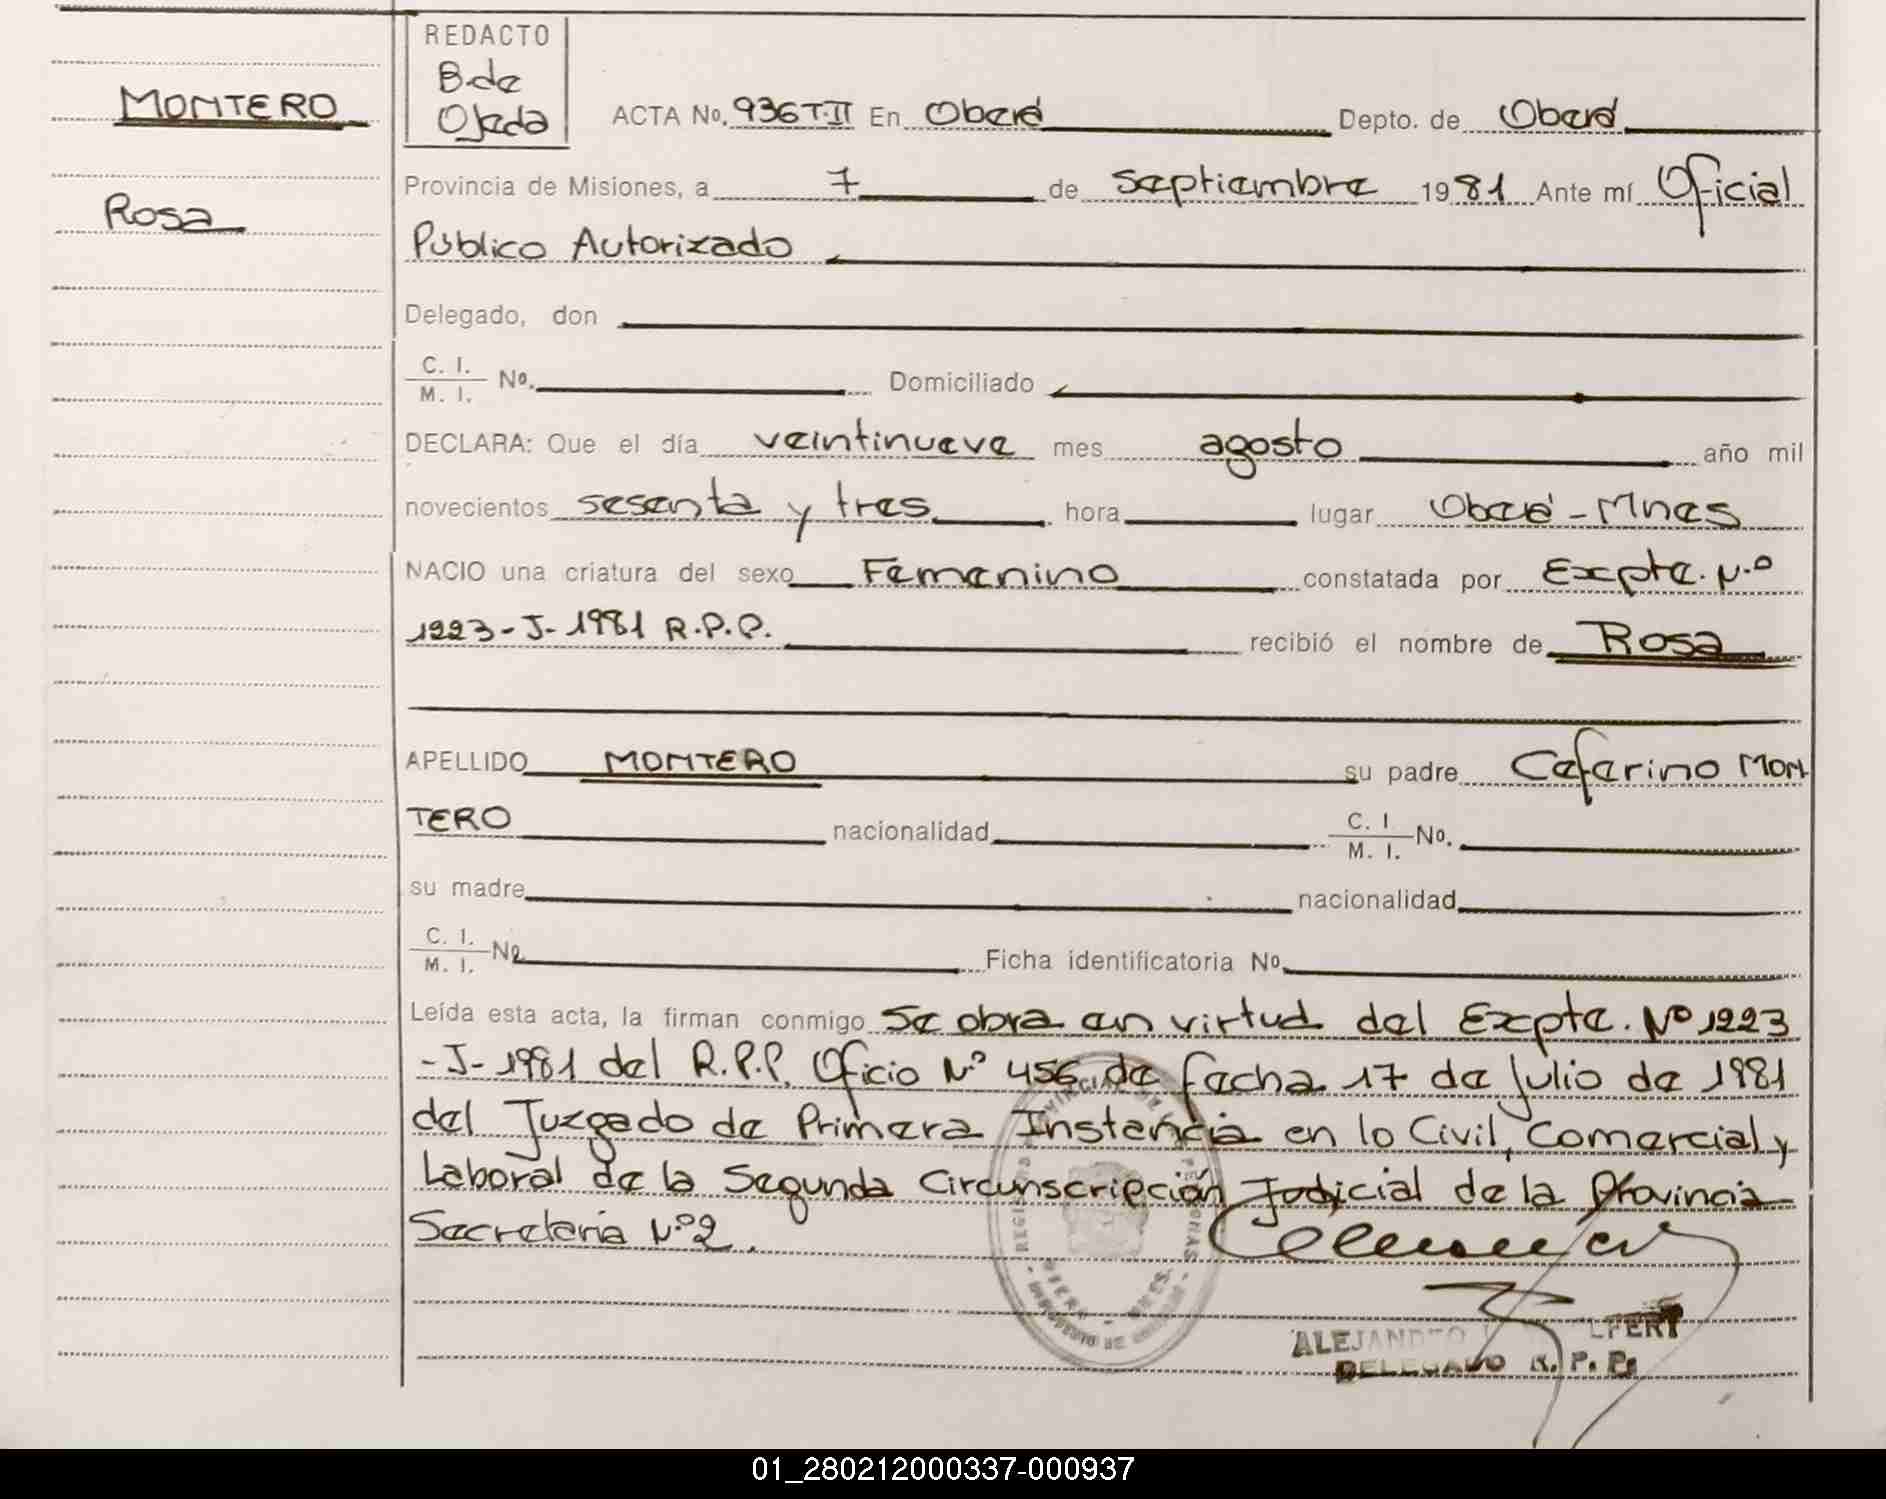 MONTERO
Rosa
REDACTO
B.de
Ojeda
ACTA No. 936 T.II En Oberá Depto. de Oberá
Provincia de Misiones, a 7 de septiembre 1981 Ante mí Oficial
Público Autorizado
Delegado, don
C. I.
M. I. No. Domiciliado
DECLARA: Que el día veintinueve mes agosto año mil
novecientos sesenta y tres hora lugar Oberá - Mnes
NACIO una criatura del sexo Femenino constatada por Expte. N.º
1223-J-1981 R.P.P. recibió el nombre de Rosa
APELLIDO MONTERO su padre Ceferino MON
TERO nacionalidad C. I M. I. No.
su madre nacionalidad
C. I. M. I. No Ficha identificatoria No
Leída esta acta, la firman conmigo Se obra en virtud del Expte. Nº 1223
-J-1981 del R.P.P. Oficio Nº 456 de fecha 17 de julio de 1981
del Juzgado de Primera Instancia en lo Civil, Comercial y
Laboral de la Segunda Circunscripción Judicial de la Provincia
Secretaría Nº 2.
ALEJANDRO
DELEGADO R. P. P.
01_280212000337-000937